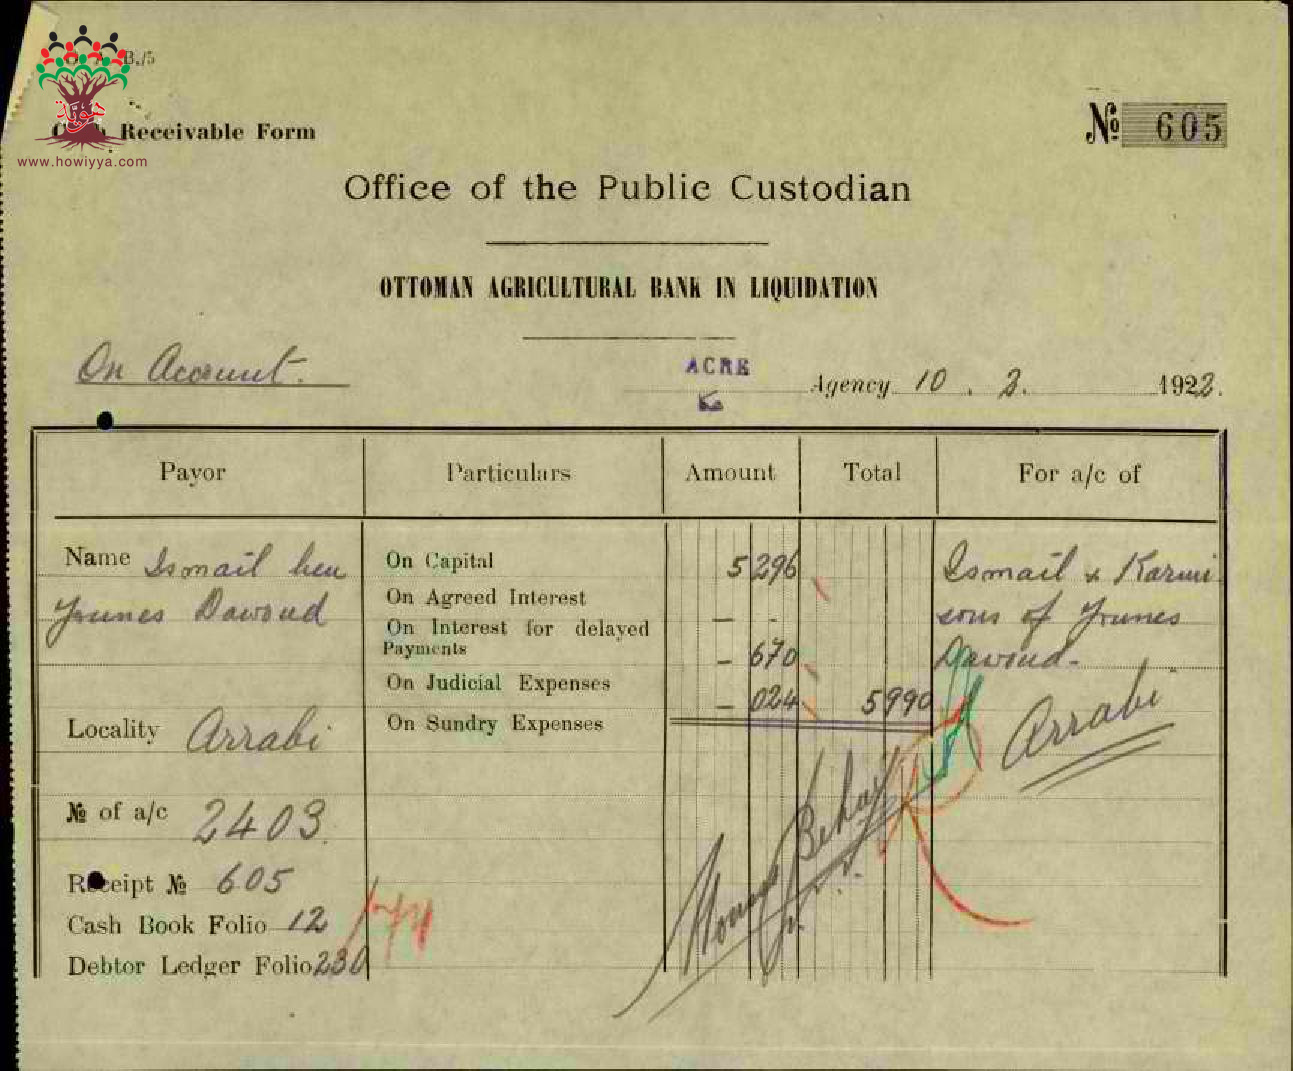 B./5
هوية
www.howiyya.com
Receivable Form
№ 605
Office of the Public Custodian
OTTOMAN AGRICULTURAL BANK IN LIQUIDATION
On Account.
ACRE
Agency 10 . 2. 1922.
Payor Particulars Amount Total For a/c of
Name Ismail ben
Younes Dawoud
Locality Arrabi
№ of a/c 2403.
Receipt № 605
Cash Book Folio 12
Debtor Ledger Folio 230
On Capital 5 296
On Agreed Interest — -
On Interest for delayed
Payments — 670
On Judicial Expenses — 024 5 990
On Sundry Expenses
Ismail & Karmi
sons of Younes
Dawoud-
Arrabi
Behar